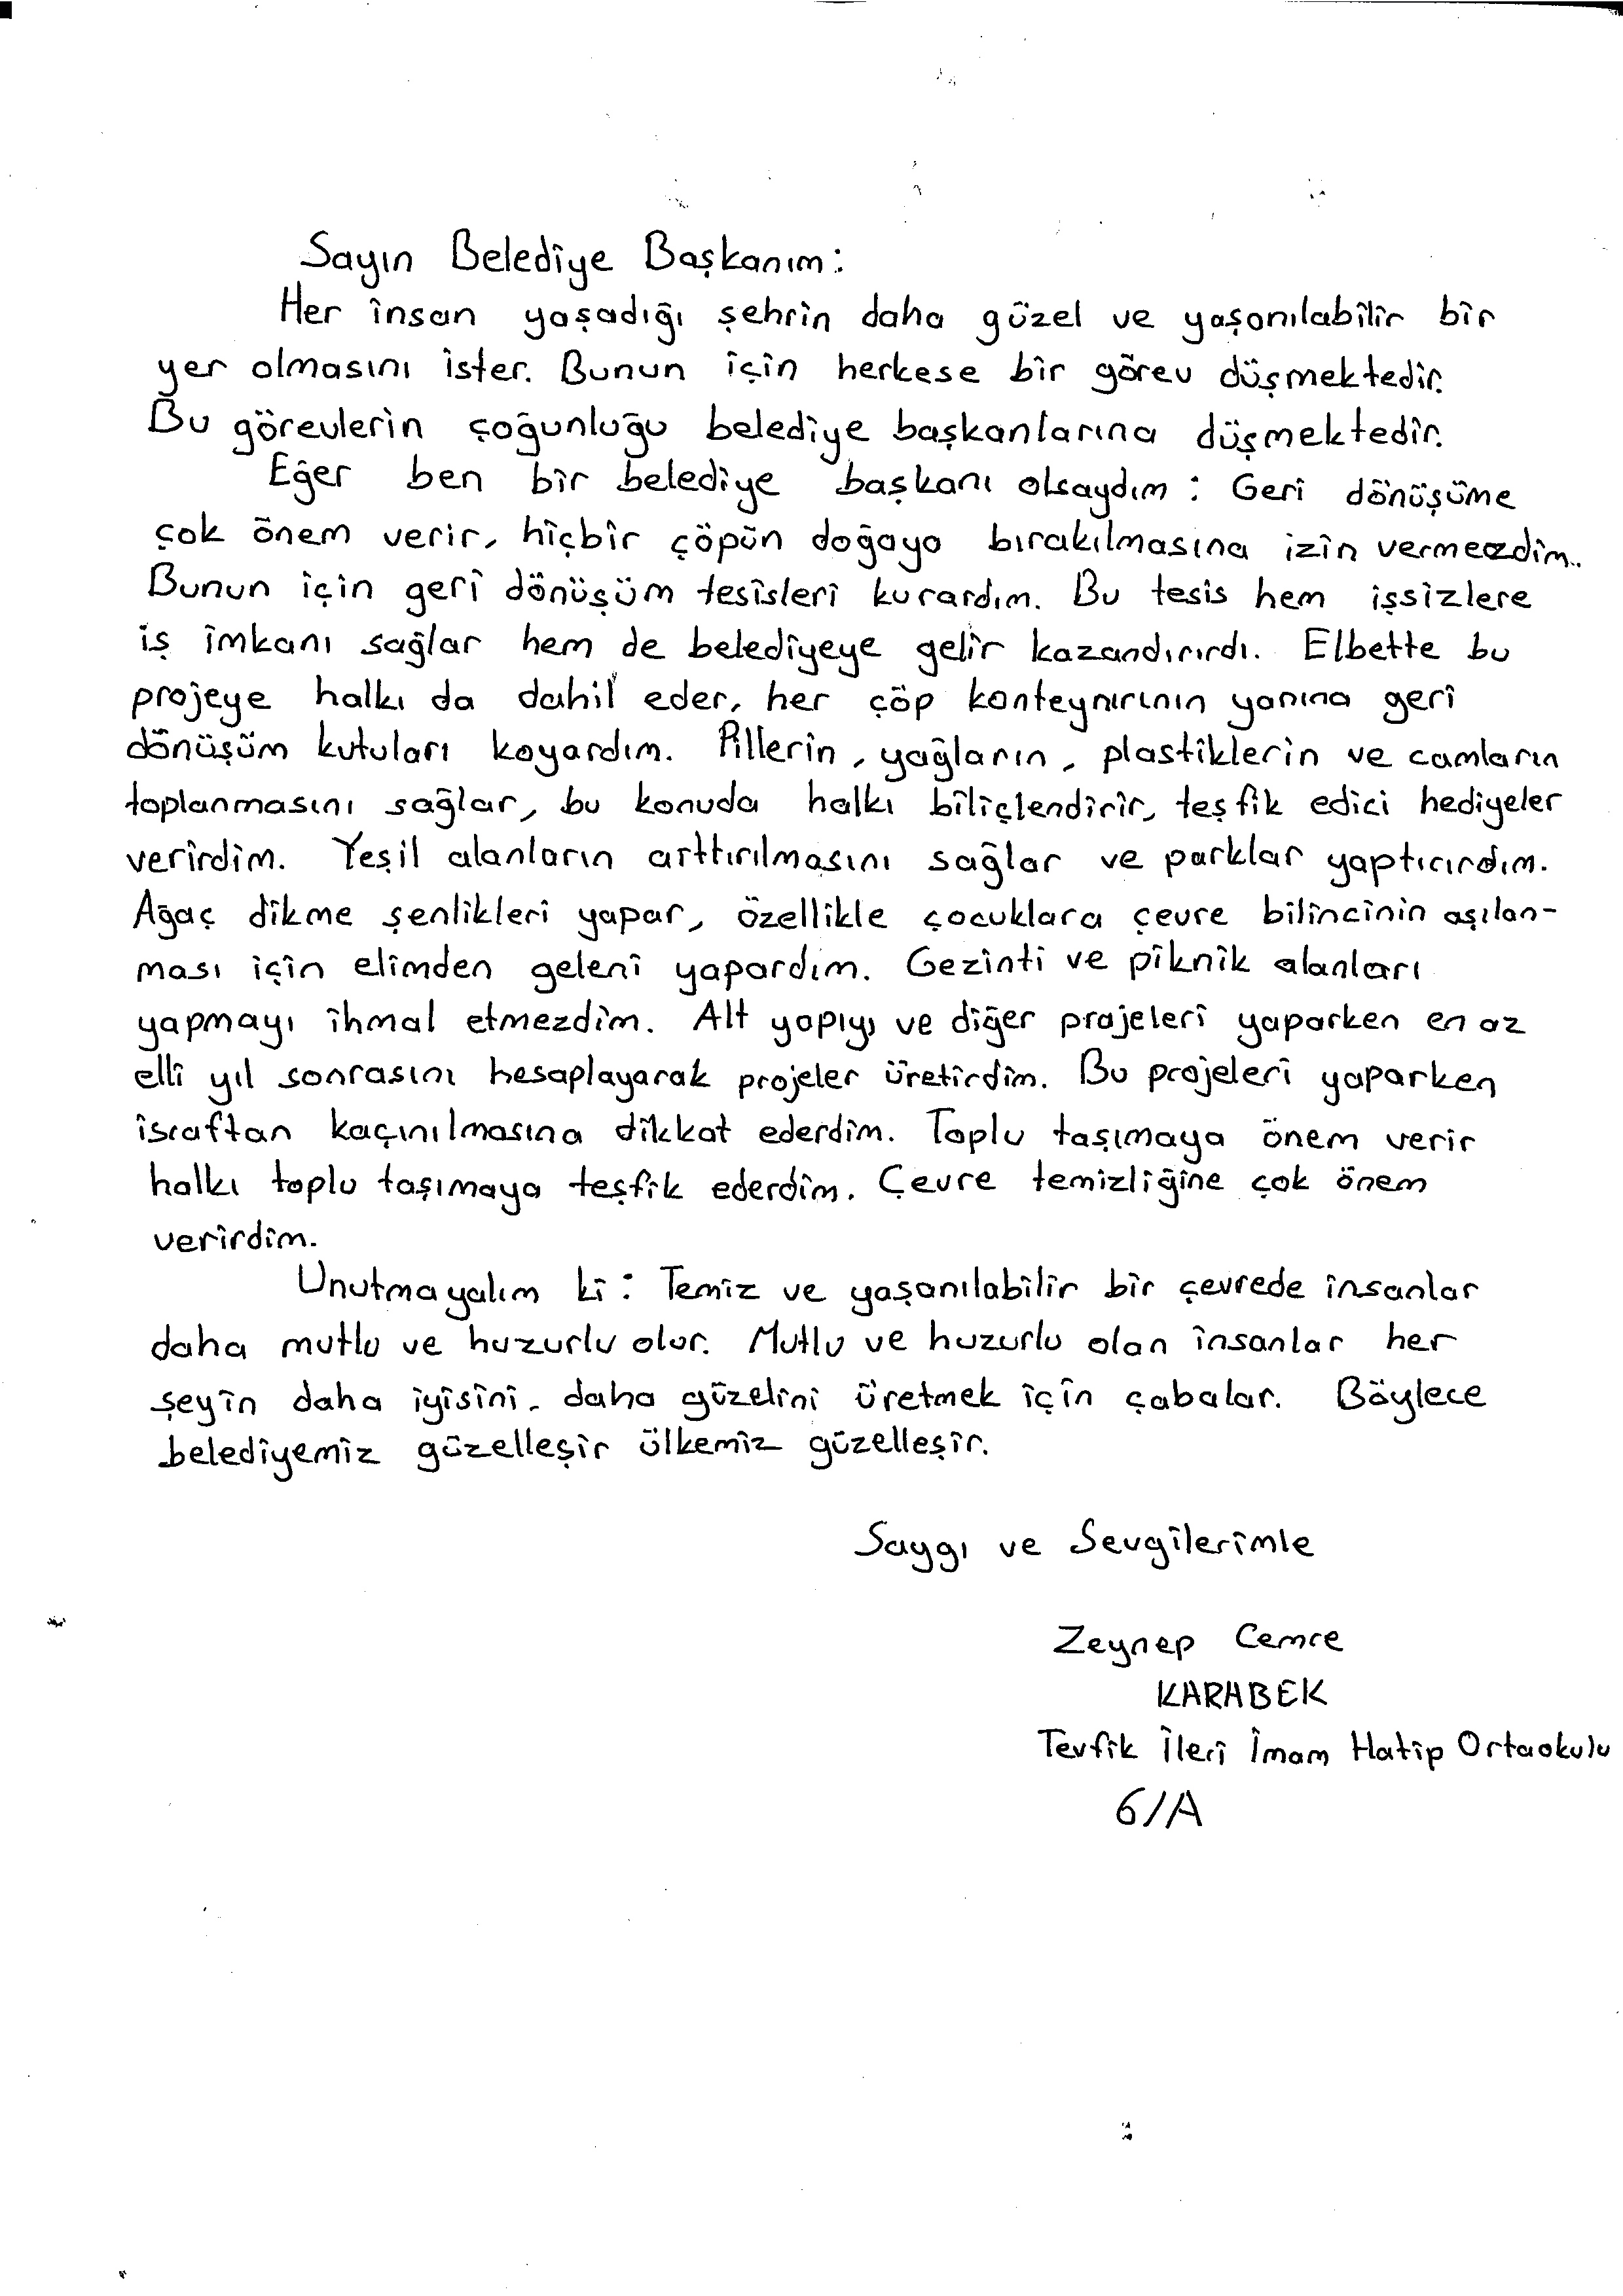 Sayın Belediye Başkanım:
Her insan yaşadığı şehrin daha güzel ve yaşanılabilir bir
yer olmasını ister. Bunun için herkese bir görev düşmektedir.
Bu görevlerin çoğunluğu belediye başkanlarına düşmektedir.
Eğer ben bir belediye başkanı olsaydım : Geri dönüşüme
çok önem verir, hiçbir çöpün doğaya bırakılmasına izin vermezdim.
Bunun için geri dönüşüm tesisleri kurardım. Bu tesis hem işsizlere
iş imkanı sağlar hem de belediyeye gelir kazandırırdı. Elbette bu
projeye halkı da dahil eder, her çöp konteynırının yanına geri
dönüşüm kutuları koyardım. Pillerin, yağların, plastiklerin ve camların
toplanmasını sağlar, bu konuda halkı biliçlendirir, teşfik edici hediyeler
verirdim. Yeşil alanların arttırılmasını sağlar ve parklar yaptırırdım.
Ağaç dikme şenlikleri yapar, özellikle çocuklara çevre bilincinin aşılan-
ması için elimden geleni yapardım. Gezinti ve piknik alanları
yapmayı ihmal etmezdim. Alt yapıyı ve diğer projeleri yaparken en az
elli yıl sonrasını hesaplayarak projeler üretirdim. Bu projeleri yaparken
israftan kaçınılmasına dikkat ederdim. Toplu taşımaya önem verir
halkı toplu taşımaya teşfik ederdim. Çevre temizliğine çok önem
verirdim.
Unutmayalım ki : Temiz ve yaşanılabilir bir çevrede insanlar
daha mutlu ve huzurlu olur. Mutlu ve huzurlu olan insanlar her
şeyin daha iyisini, daha güzelini üretmek için çabalar. Böylece
belediyemiz güzelleşir ülkemiz güzelleşir.
Saygı ve Sevgilerimle
Zeynep Cemre
KARABEK
Tevfik İleri İmam Hatip Ortaokulu
6/A